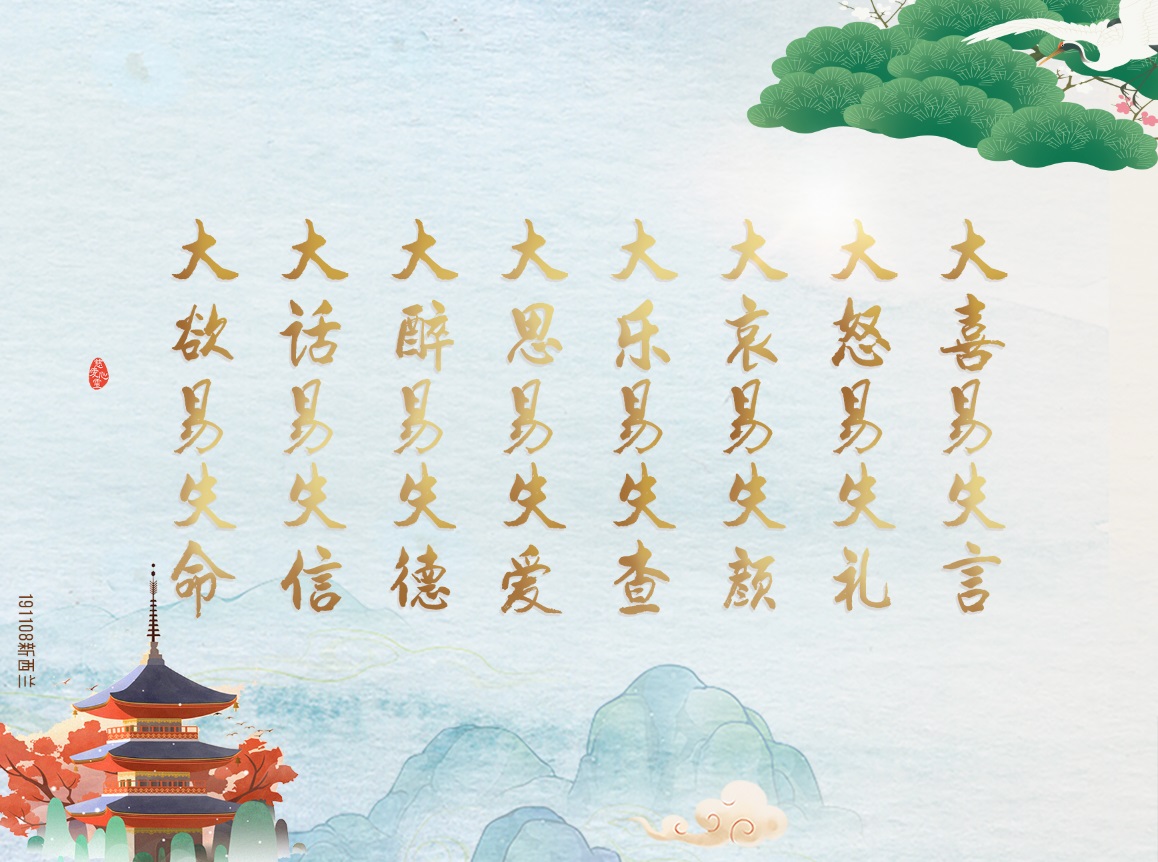 大喜易失言
大怒易失礼
大哀易失颜
大乐易失查
大思易失爱
大醉易失德
大话易失信
大欲易失命
191108新西兰